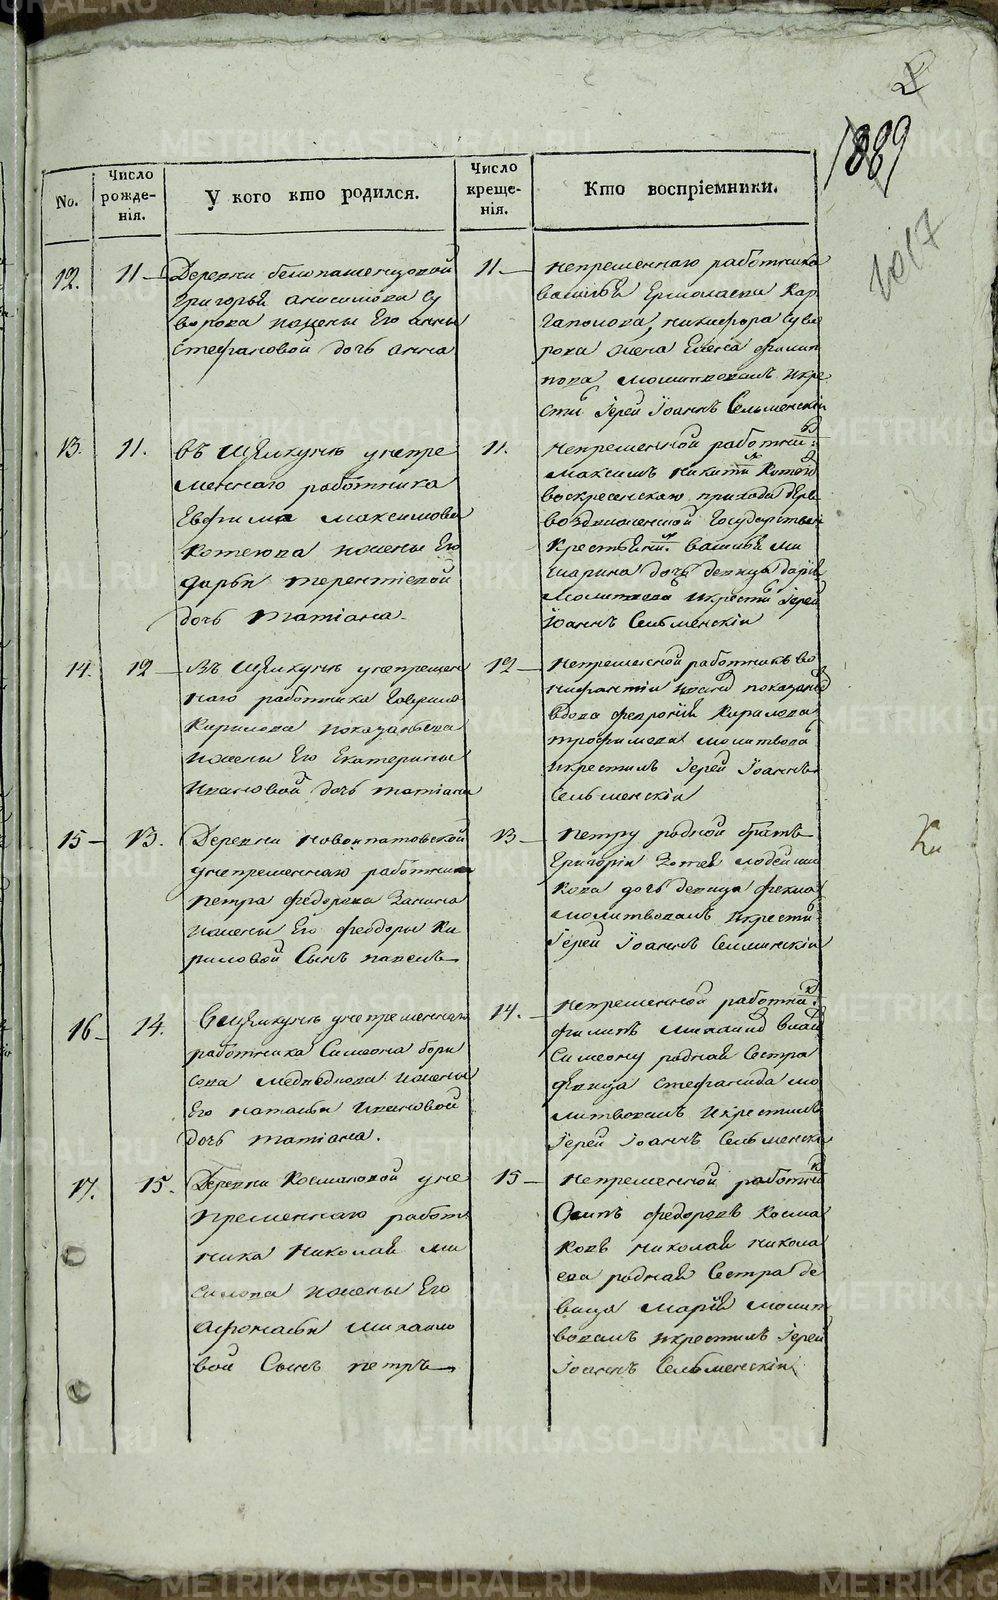 2
1889
1017
No.
Число рожде-нія.
У кого кто родился.
Число креще-нія.
Кто воспріемники.
12.
11
Деревни белопашенцовой
Григорья анисимова су
ворова ижены Его анны
Стефановой дочь анна
11
непременнаго работника
василья Ермолаева Кар
гаполова, никифора суво
рова жена Елена филип
пова молитвовалъ икре
сти Іерей Іоаннъ Сельменскіи
13.
11.
въ Щелкунѣ унепре
меннаго работника
Евфима максимова
Котегова ижены Его
дарьи терентіевой
дочь татіана.
11.
непременной работни
максимъ никити
воскресенскаго прихода
воздвиженской государствен
Крестьяни василья ми
шарина дочь девица дарія
молитвова икрести Іерей
Іоаннъ Сельменскіи
14.
12
Въ Щелкунѣ унепремен
наго работника Гаврила
Кирилова
ижены Его Екатерины
Ивановой дочь татіана
12
непременной работникъ во
нифантіи
вдова феврониія Кирилова
трофимова молитвова
икрестилъ Іерей Іоаннъ
Сельменскіи
15
13.
Деревни новоипатовской
унепременнаго работника
петра федорова Занина
ижены Его феодоры Ки
риловой Сынъ павелъ
13
петру родной братъ
Григорій Зотей
кова дочь девица фекла
молитвовалъ икрести
Іерей Іоаннъ Селменскіи
16
14.
Вщелкунѣ унепременнаго
работника Симеона бори
сова медведкова ижены
Его натальи Ивановой
дочь татіана.
14.
непременной работни
филипъ
Симеону родная Сестра
девица стефанида мо
литвовалъ икрестилъ
Іерей Іоаннъ Сельменски
17.
15.
Деревни Космаковой уне
пременнаго работ
ника николая ми
силова ижены Его
Афонасьи михаило
вой Сынъ петръ
15
непременной работни
Осипъ федоровъ Косма
ковъ николая никола
ева родная Сестра де
вица марія молит
вовалъ икрестилъ Іерей
Іоаннъ Сельменскіи
METRIKI.GASO-URAL.RU